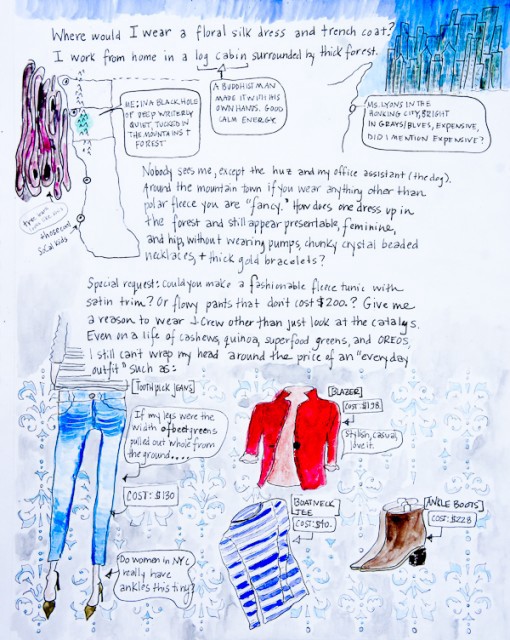 Where would I wear a floral silk dress and trench coat?
I work from home in a log cabin surrounded by thick forest.
A BUDDHIST MAN
MADE IT WITH HIS
OWN HANDS. GOOD
CALM ENERGY
ME: IN A BLACK HOLE
OF DEEP WRITERLY
QUIET, TUCKED IN
THE MOUNTAINS +
FOREST
MS. LYONS IN THE
HONKING CITY, BRIGHT
IN GRAYS/BLUES, EXPENSIVE,
DID I MENTION EXPENSIVE?
those cool
SoCal kids
Nobody sees me, except the huz and my office assistant (the dog).
Around the mountain town if you wear anything other than
polar fleece you are "fancy." How does one dress up in
the forest and still appear presentable, feminine,
and hip, without wearing pumps, chunky crystal beaded
necklaces, + thick gold bracelets?
Special request: Could you make a fashionable fleece tunic with
satin trim? Or flowy pants that don't cost $200? Give me
a reason to wear J. Crew other than just look at the catalogs.
Even on a life of cashews, quinoa, superfood greens, and OREOS,
I still can't wrap my head around the price of an "everyday
outfit" such as:
[TOOTHPICK JEANS]
If my legs were the
width of beet greens
pulled out whole from
the ground....
COST: $130
Do women in NYC
really have
ankles this tiny?
[BLAZER]
COST: $198
Stylish, casual,
love it.
[BOATNECK
TEE
COST: $40.
[ANKLE BOOTS]
COST: $228